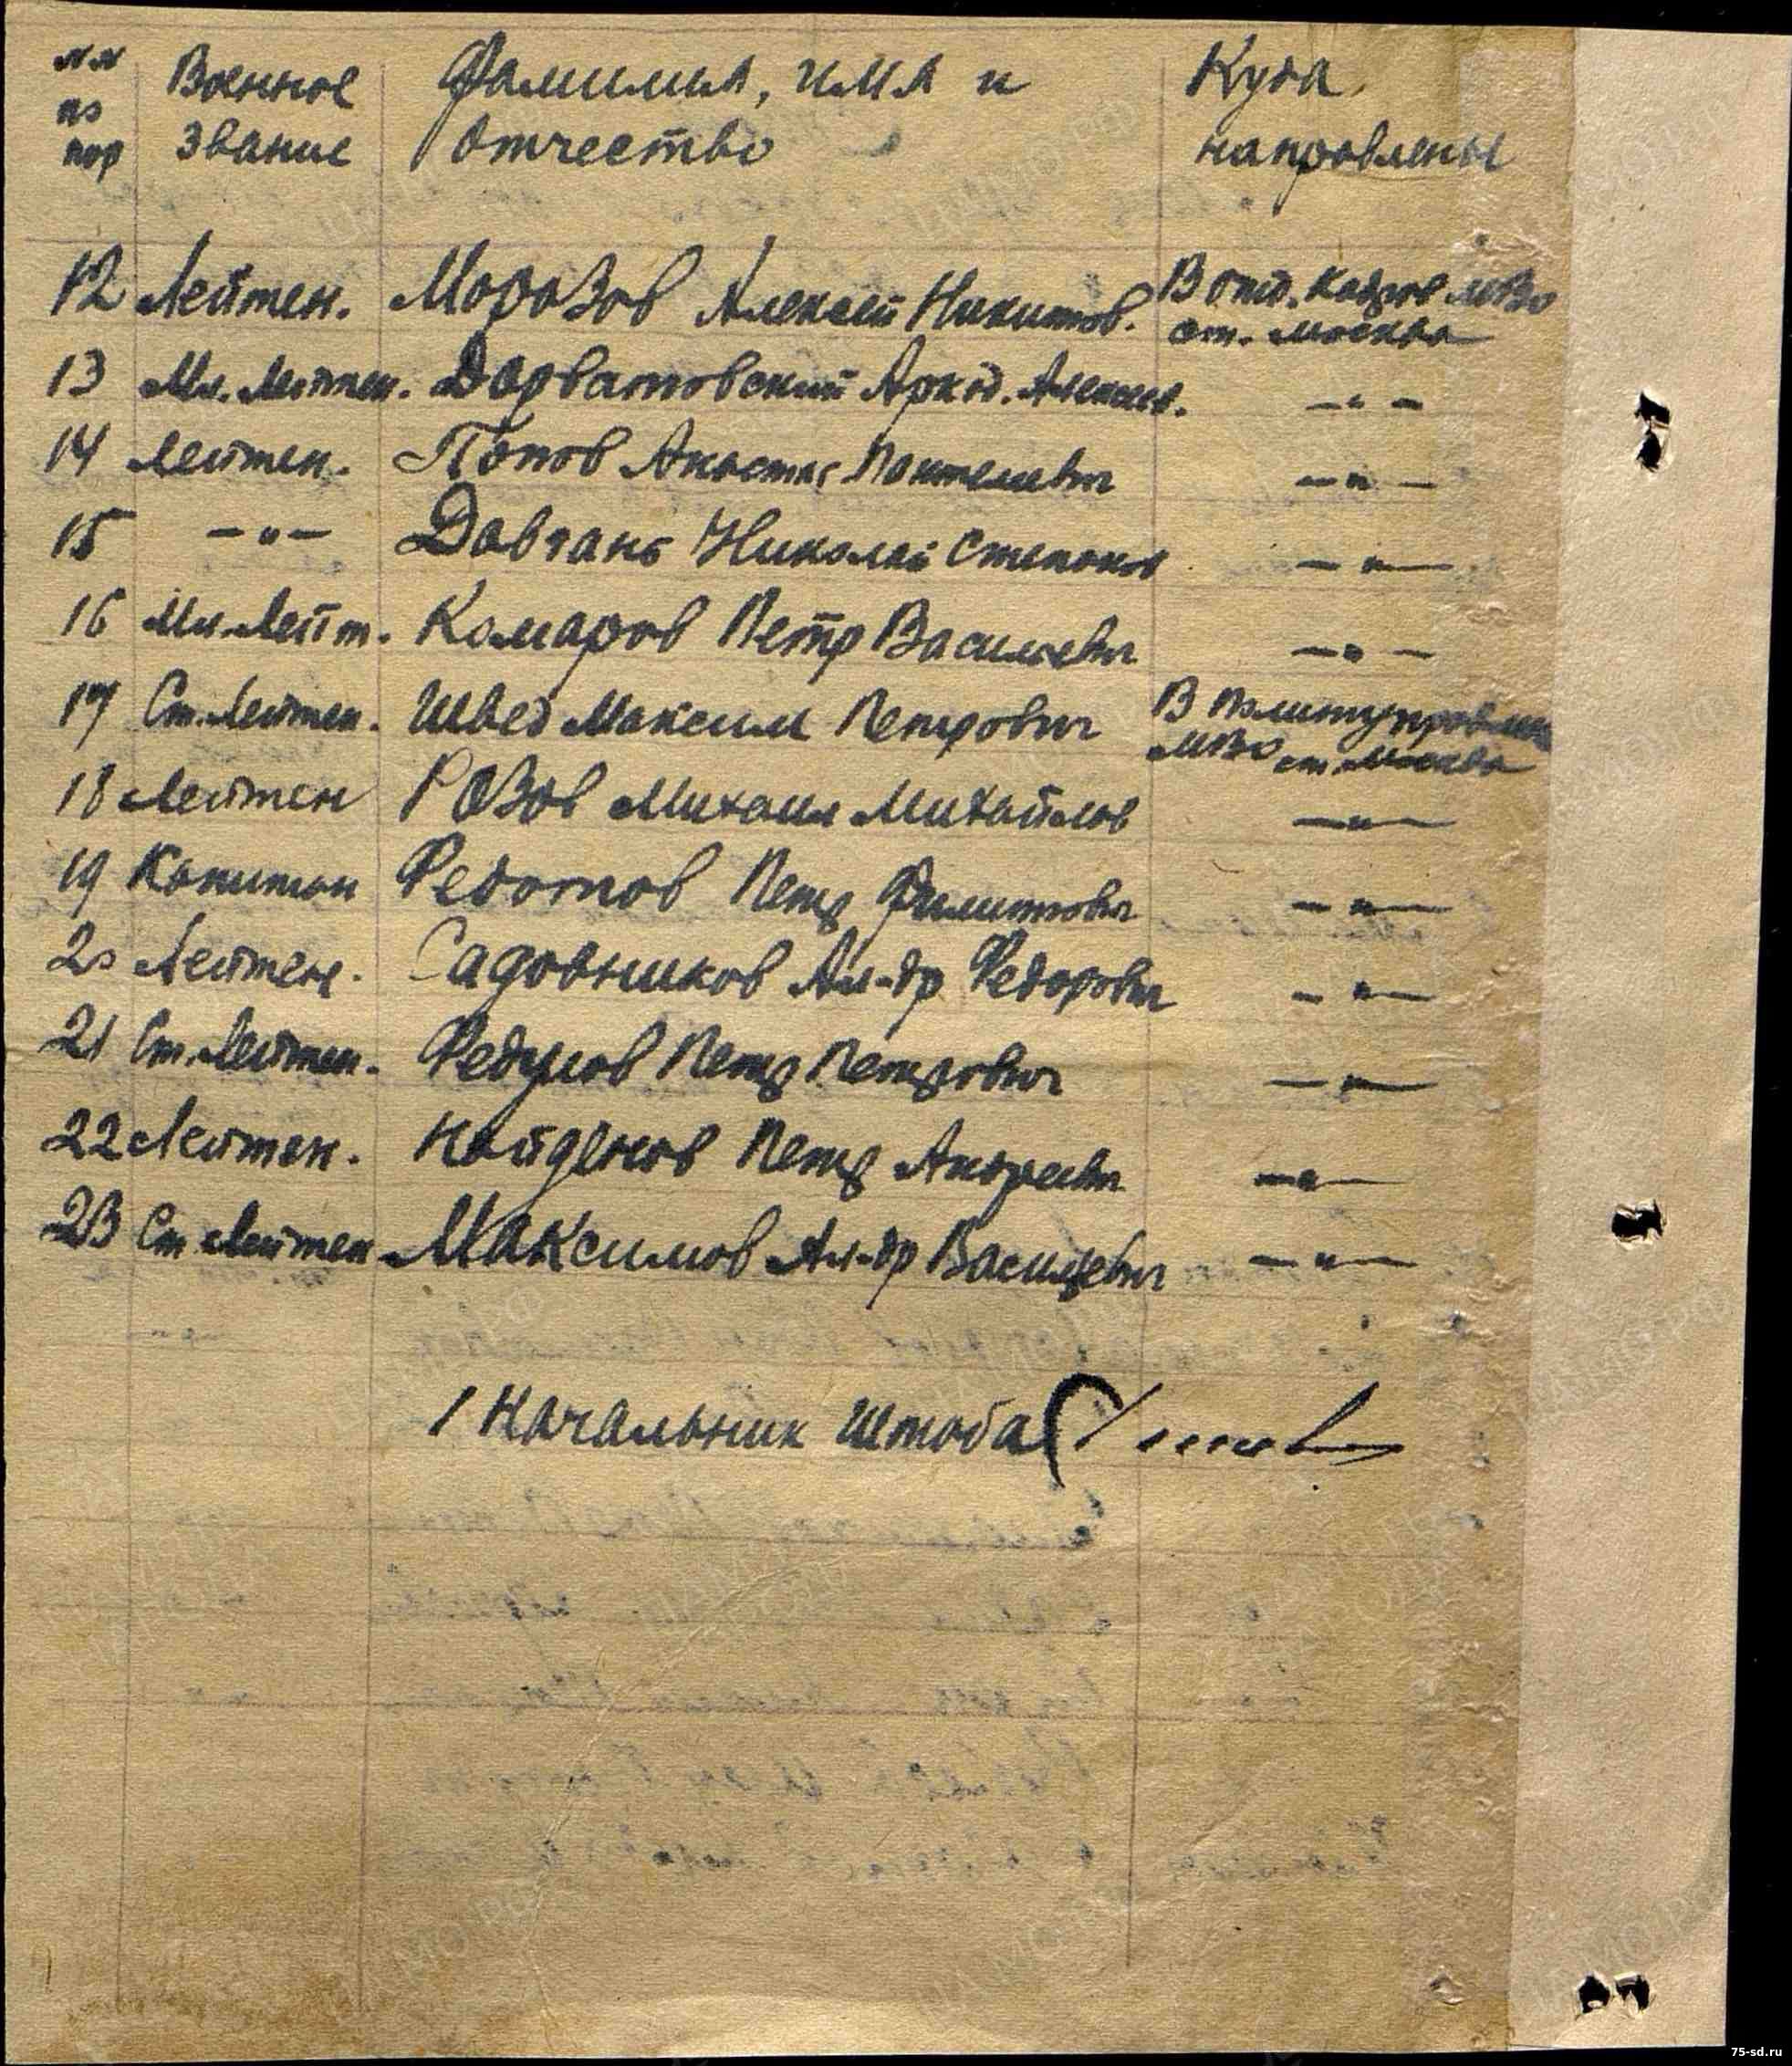 №№ Военное Фамилия, имя и Куда
по
пор звание отчество направлены
12 Лейтен. Морозов Алексей Никитов. В отд. кадров МВО
ст. Москва
13 Мл. Лейтен. Аркад. Алексеев. —〃—
14 Лейтен. Попов Пантелеевич —〃—
15 —〃— Довгань Николай Степанов —〃—
16 Мл. Лейт. Комаров Петр Васильевич —〃—
17 Ст. Лейтен. Швед Максим Петрович В Политуправлен
МВО ст. Москва
18 Лейтен Розов Михаил Михайлов —〃—
19 Капитан Федотов Петр Филиппович —〃—
20 Лейтен. Садовников Ал-др Федорович —〃—
21 Ст. Лейтен. Федулов Петр Петрович —〃—
22 Лейтен. Найденов Петр Андреевич —〃—
23 Ст. Лейтен Максимов Ал-др Васильевич —〃—
Начальник штаба
75-sd.ru